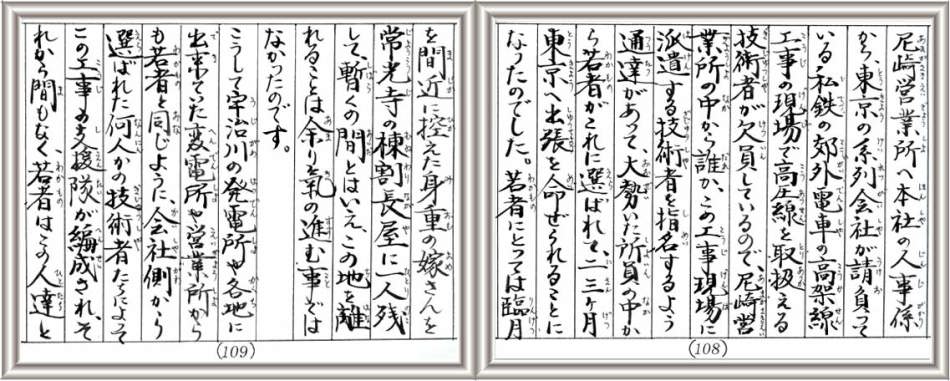 尼崎営業所へ本社の人事係
から、東京の系列会社が請負って
いる私鉄の郊外電車の高架線
工事の現場で高圧線を取扱える
技術者が欠員しているので、尼崎営
業所の中から誰か、この工事現場に
派遣する技術者を指名するよう
通達があって、大勢いた所員の中か
ら若者がこれに選ばれて、二三ヶ月
東京へ出張を命ぜられることに
なったのでした。若者にとっては臨月
(108)
を間近に控えた身重の嫁さんを
常光寺の棟割長屋に一人残
して暫くの間とはいえ、この地を離
れることは余り気の進む事では
なかったのです。
こうして宇治川の発電所や各地に
出来ていた変電所や営業所から
も若者と同じように、会社側から
選ばれた何人かの技術者たちによって
この工事の支援隊が編成され、そ
れから間もなく、若者はこの人達と
(109)